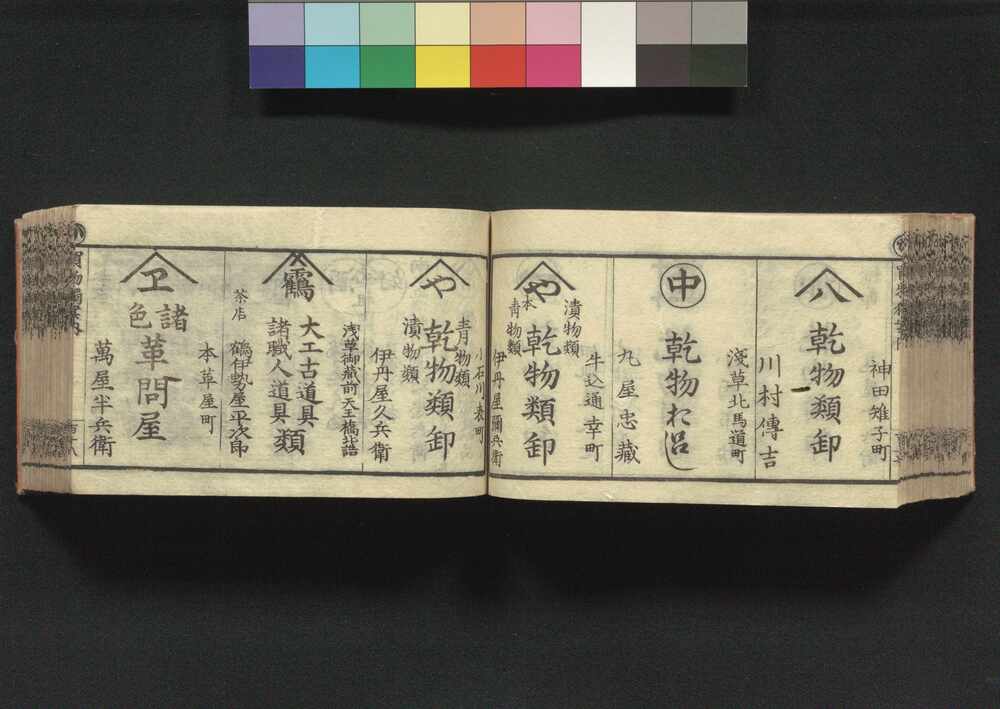 神田雉子町
八
乾物類卸
川村傳吉
淺草北馬道町
中
乾物おろし
丸屋忠藏
牛込通寺町
漬物類
や
乾物類卸
青物類
伊丹屋彌兵衛
小石川表町
青物類
や
乾物類卸
漬物類
伊丹屋久兵衛
浅草御蔵前天王橋詰
鶴
大工古道具
諸職人道具類
茶店
鶴伊勢屋平次郎
本革屋町
ヱ
諸色
革問屋
萬屋半兵衛